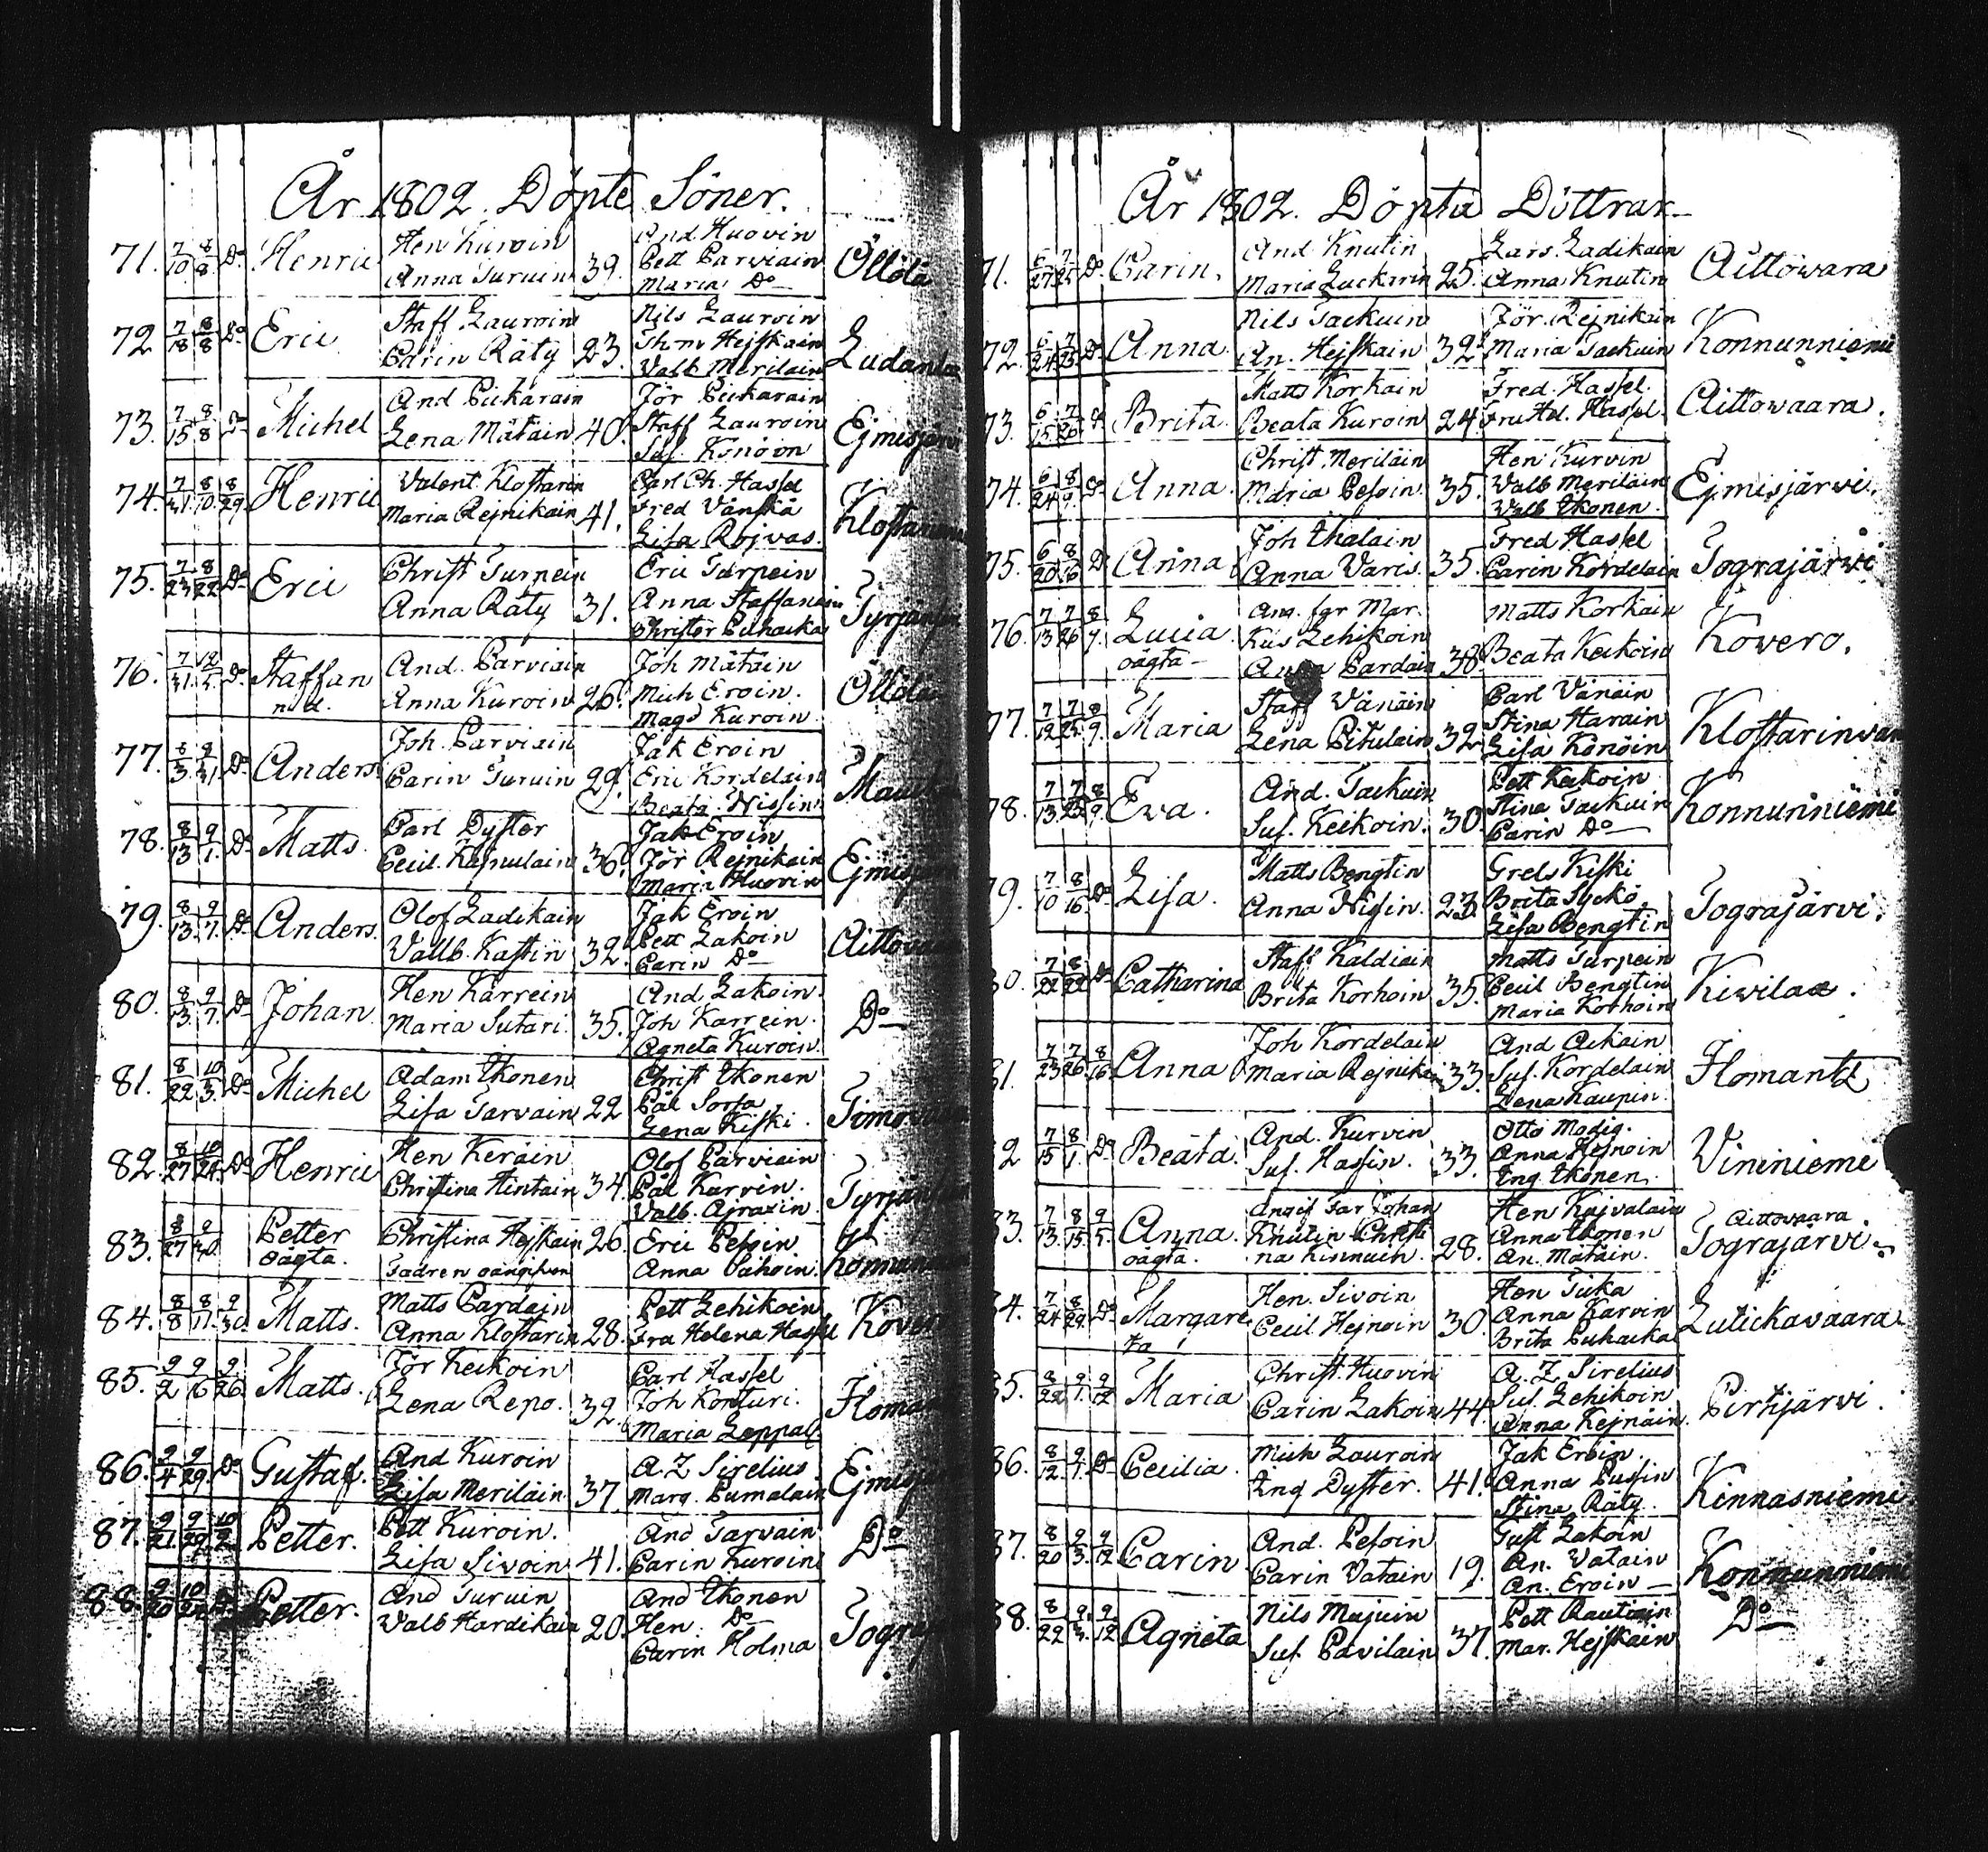 År 1802 Döpte Söner.
71. 7/10 8/8 Do Henric Hen Kuroin Anna Turuin 39. And. Huovin Pett Parviain Maria Do Öllölä
72 7/18 8/8 Do Eric Staff Lauroin Carin Räty 23. Nils Lauroin Thom Hejskain Valb Merilain
73. 7/15 8/8 Do Michel And Pickarain Lena Mätäin 40. Jör Pickarain Staff Lauroin Sus. Konoin
74. 7/31. 8/10. 8/29. Henric Valent. Klostarin Maria Rejnikain 41. Carl Ch. Hassel Fred Vänskä Lisa Rojvas.
75. 7/23 8/22 Do Eric Christ Turpein Anna Räty 31. Eric Turpein Anna Staffanain Christer Puhacka
76. 7/31. Do Staffan And. Parviain Anna Kuroin 26. Joh Mätäin Mich Eroin. Magd Kuroin. Öllölä
77. 8/3. Do Anders Joh. Parviain Carin Turuin 29. Jak Eroin Eric Kordelain Beata Nissin.
78. 8/13 9/1. Do Matts. Carl Dyster Cecil. 36. Jak Eroin Jör Rejnikain Maria Huovin
79. 8/13. 9/7. Do Anders. Olof Ladikain Vallb. Kastin 32. Jak Eroin Pett Lakoin Carin Do
80. 8/13. 9/7. Do Johan Hen Karrein Maria Sutari. 35. And Lakoin. Joh Karrein. Agneta Kuroin. Do
81. 8/22 10/3. Do Michel Adam Ikonen Lisa Tarvain 22 Christ Ikonen Pål Sorsa Lena Kiski.
82. 8/27 10/24. Do Henric Hen Keräin Christina Hintain 34. Olof Parviain Pål Karvin. Valb. Ajraxin.
83. 8/27 9/30. Petter oägta. Christina Hejskain 26. Fadren oangifven Eric Pesoin Anna Pahoin.
84. 8/8 8/17. 9/30. Matts. Matts Pardain Anna Klostarin 28. Pett Lehikoin Fra Helena Hassel
85. 9/2 9/6 9/26 Matts. Jör Keikoin Lena Repo. 32. Carl Hassel Joh Konturi. Maria Loppal.
86. 9/4 9/29. Do Gustaf. And Kuroin Lisa Meriläin 37. A. Z Sirelius. Marg. Pumalain
87. 9/21. 9/29. 10/2. Petter. Pett Kuroin. Lisa Sivoin 41. And Tarvain Carin Kuroin Do
88. 9/20 Petter. And Turuin Valb Hardikain 20. And Ikonen Hen. Do Carin Holma
År 1802. Döpta Döttrar
71. 6/27 7/25 Do Carin. And. Knutin Maria Luckarin 25. Lars. Ladikain Anna Knutin Aittowara
72. 6/24 7/25. Do Anna. Nils Tackuin An. Hejskain 32. Jör. Rejnikain Maria Tackuin Konnunniemi
73. 6/15 7/26 Do Brita. Matts Korkain Beata Kuroin 24. Fred. Hassel. Fru Hel. Hassel. Aittowaara.
74. 6/24 8/9. Do Anna. Christ. Meriläin Maria Pesoin. 35. Hen Kurvin Valb Meriläin Valb Ikonen. Ejmisjärvi.
75. 6/20 8/16 Do Anna Joh Ihalain Anna Varis. 35. Fred Hassel Carin Kordelain Tograjärvi
76. 7/13 7/26 8/7. Lucia oägta Ang. fgr Mar. Kus Lehikoin Anna Pardain 38. Matts Korkain Beata Keikoin Kowero.
77. 7/12 7/25 8/9. Maria Staff Vänäin Lena Pitulain 32. Carl Vänäin Stina Harain Lisa Konoin
78. 7/13. 7/25 8/9. Ewa. And. Tackuin Sus. Keikoin. 30. Pett Keikoin Stina Tackuin Carin Do Konnunniemi
79. 7/10 8/16. Do Lisa. Matts Bengtin Anna Nissin. 23. Grels Kiski Brita Syckö. Lisa Bengtin Tograjärvi.
80. 7/22 8/22 Do Catharina Staff Kaldiain Brita Korhoin 35. Matts Turpein Cecil Bengtin Maria Korhoin Kiwilax.
81. 7/23 7/26 8/16. Anna Joh Kordelain Maria Rejnikain 33. And Ackain Sus. Kordelain Lena Kaupin. Ilomants
82 7/15 8/1. Do Beata. And. Kurvin Sus. Hassin. 33. Otto Modig. Anna Hejnoin Ing Ikonen. Vininiemi
83. 7/13. 8/15. 9/5. Anna. oägta. Angif Far Johan Knutin Christina Kinnuin. 28. Hen Kajvalain Anna Ikonen An. Mätäin. Aittovaara Tograjärvi.
84. 7/24 8/29 Do Margareta Hen. Sivoin Cecil Hejnoin 30. Hen Tuka Anna Karvin Brita Puhacka Lutickavaara.
85. 8/22 9/1. 9/12 Maria Christ. Huovin Carin Lakoin 44. A. Z Sirelius Sus. Lehikoin Anna Rejnäin. Pirttijärvi.
86. 8/12. 9/1. Do Cecilia. Mich Lauroin Ing Dyster. 41. Jak Eroin. Anna Pussin Stina Räty. Kinnasniemi
87. 8/20 9/3. 9/12 Carin And. Pesoin Carin Vatain 19. Gust Lakoin An. Vatain An. Eroin Konnunniemi
88. 8/22 9/3. 9/12 Agneta Nils Mujuin Sus. Pavilain 37. Pett Rautiain Mar. Hejskain Do